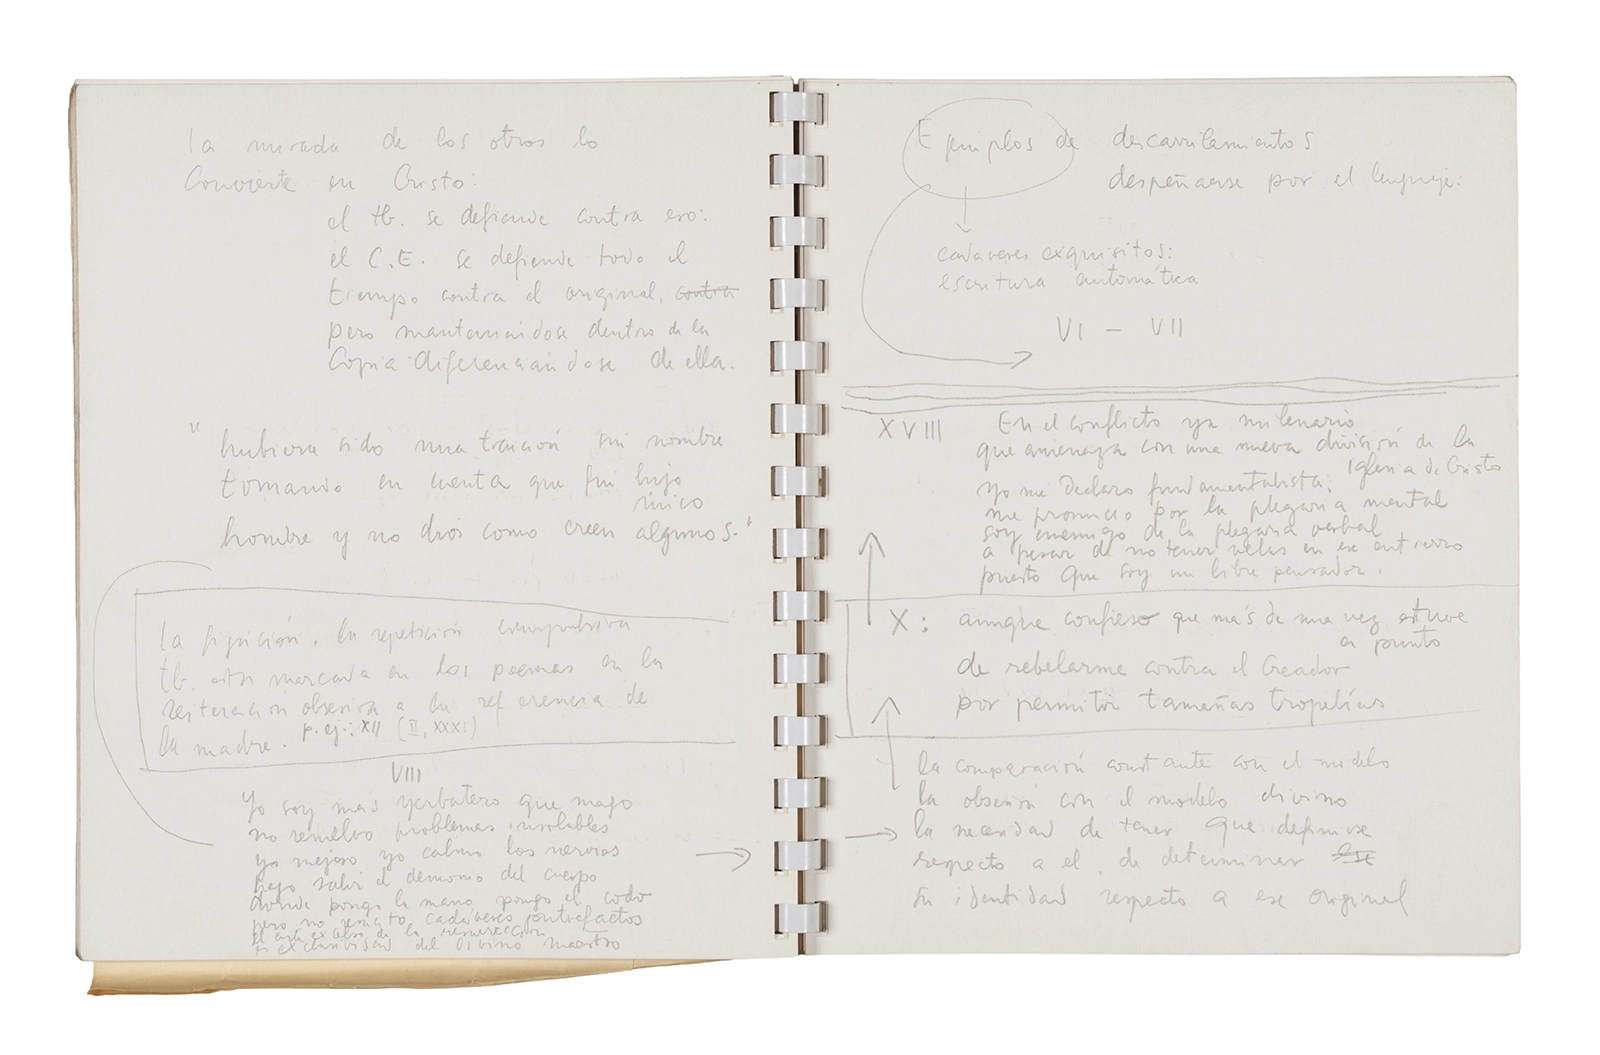 la mirada de los otros lo
Convierte en Cristo:
el tb. se defiende contra eso:
el C.E. se defiende todo el
tiempo contra el original, contra
pero manteniéndose dentro de la
Copia diferenciándose de ella.
" hubiera sido una traición sin nombre
tomando en cuenta que fui hijo
único
hombre y no dios como creen algunos."
La fijación, la repetición compulsiva
tb. está marcada en los poemas en la
reiteracion obsesiva a la referencia de
la madre. p. ej.: XII (II, XXXI)
VIII
Yo soy más yerbatero que mago
no resuelvo problemas insolubles
yo mejoro yo calmo los nervios
hago salir el demonio del cuerpo
donde pongo la mano pongo el codo
pero no resucito cadáveres putrefactos
el arte excelso de la resurrección
es exclusividad del divino maestro
Ejemplos de descarrilamientos
despeñarse por el lenguaje:
cadaveres exquisitos:
escritura automática
VI - VII
XVIII En el conflicto ya milenario
que amenaza con una nueva división de la
Iglesia de Cristo
yo me declaro fundamentalista:
me pronuncio por la plegaria mental
soy enemigo de la plegaria verbal
a pesar de no tener velas en ese entierro
puesto que soy un libre pensador.
X: aunque confieso que más de una vez estuve
a punto
de rebelarme contra el Creador
por permitir tamañas tropelías
la comparación constante con el modelo
la obsesión con el modelo divino
la necesidad de tener que definirse
respecto a el, de determinar
su identidad respecto a ese original